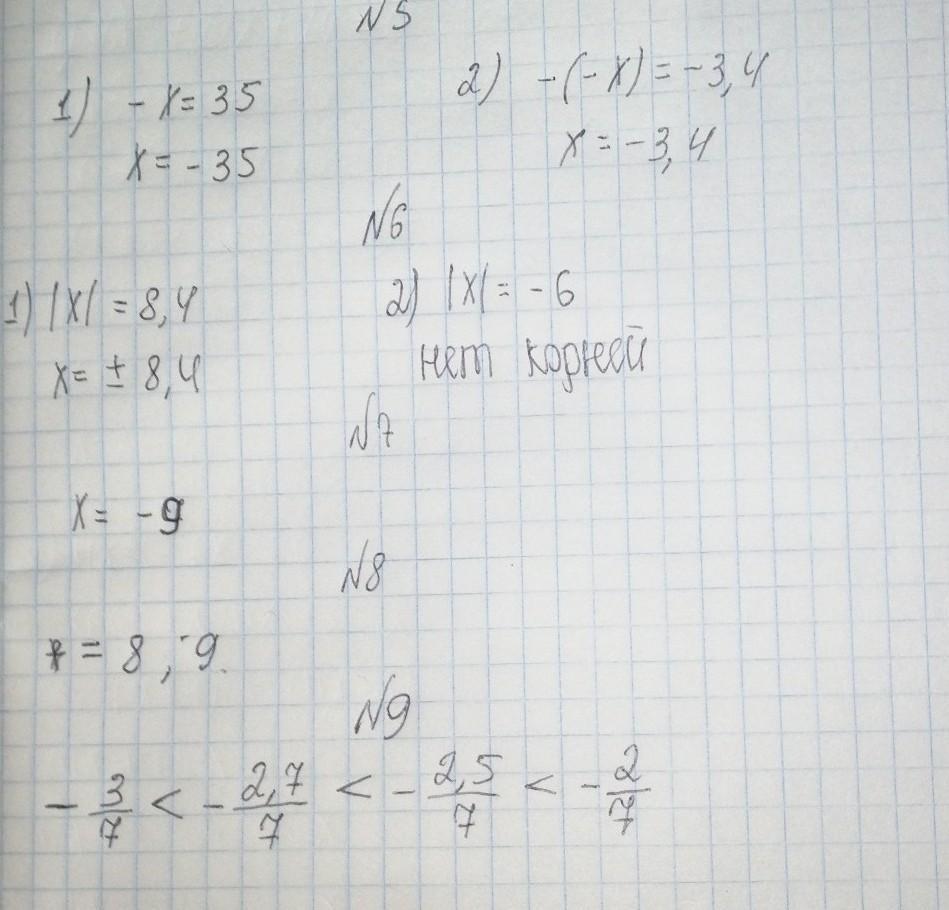 N5
1) -x = 35
x = - 35
2) -(-x) = -3,4
x = -3,4
N6
1) |x| = 8,4
x = ± 8,4
2) |x| = - 6
нет корней
N7
x = - 9
N8
* = 8 ; 9.
N9
- 3/7 < - 2,7/7 < - 2,5/7 < - 2/7